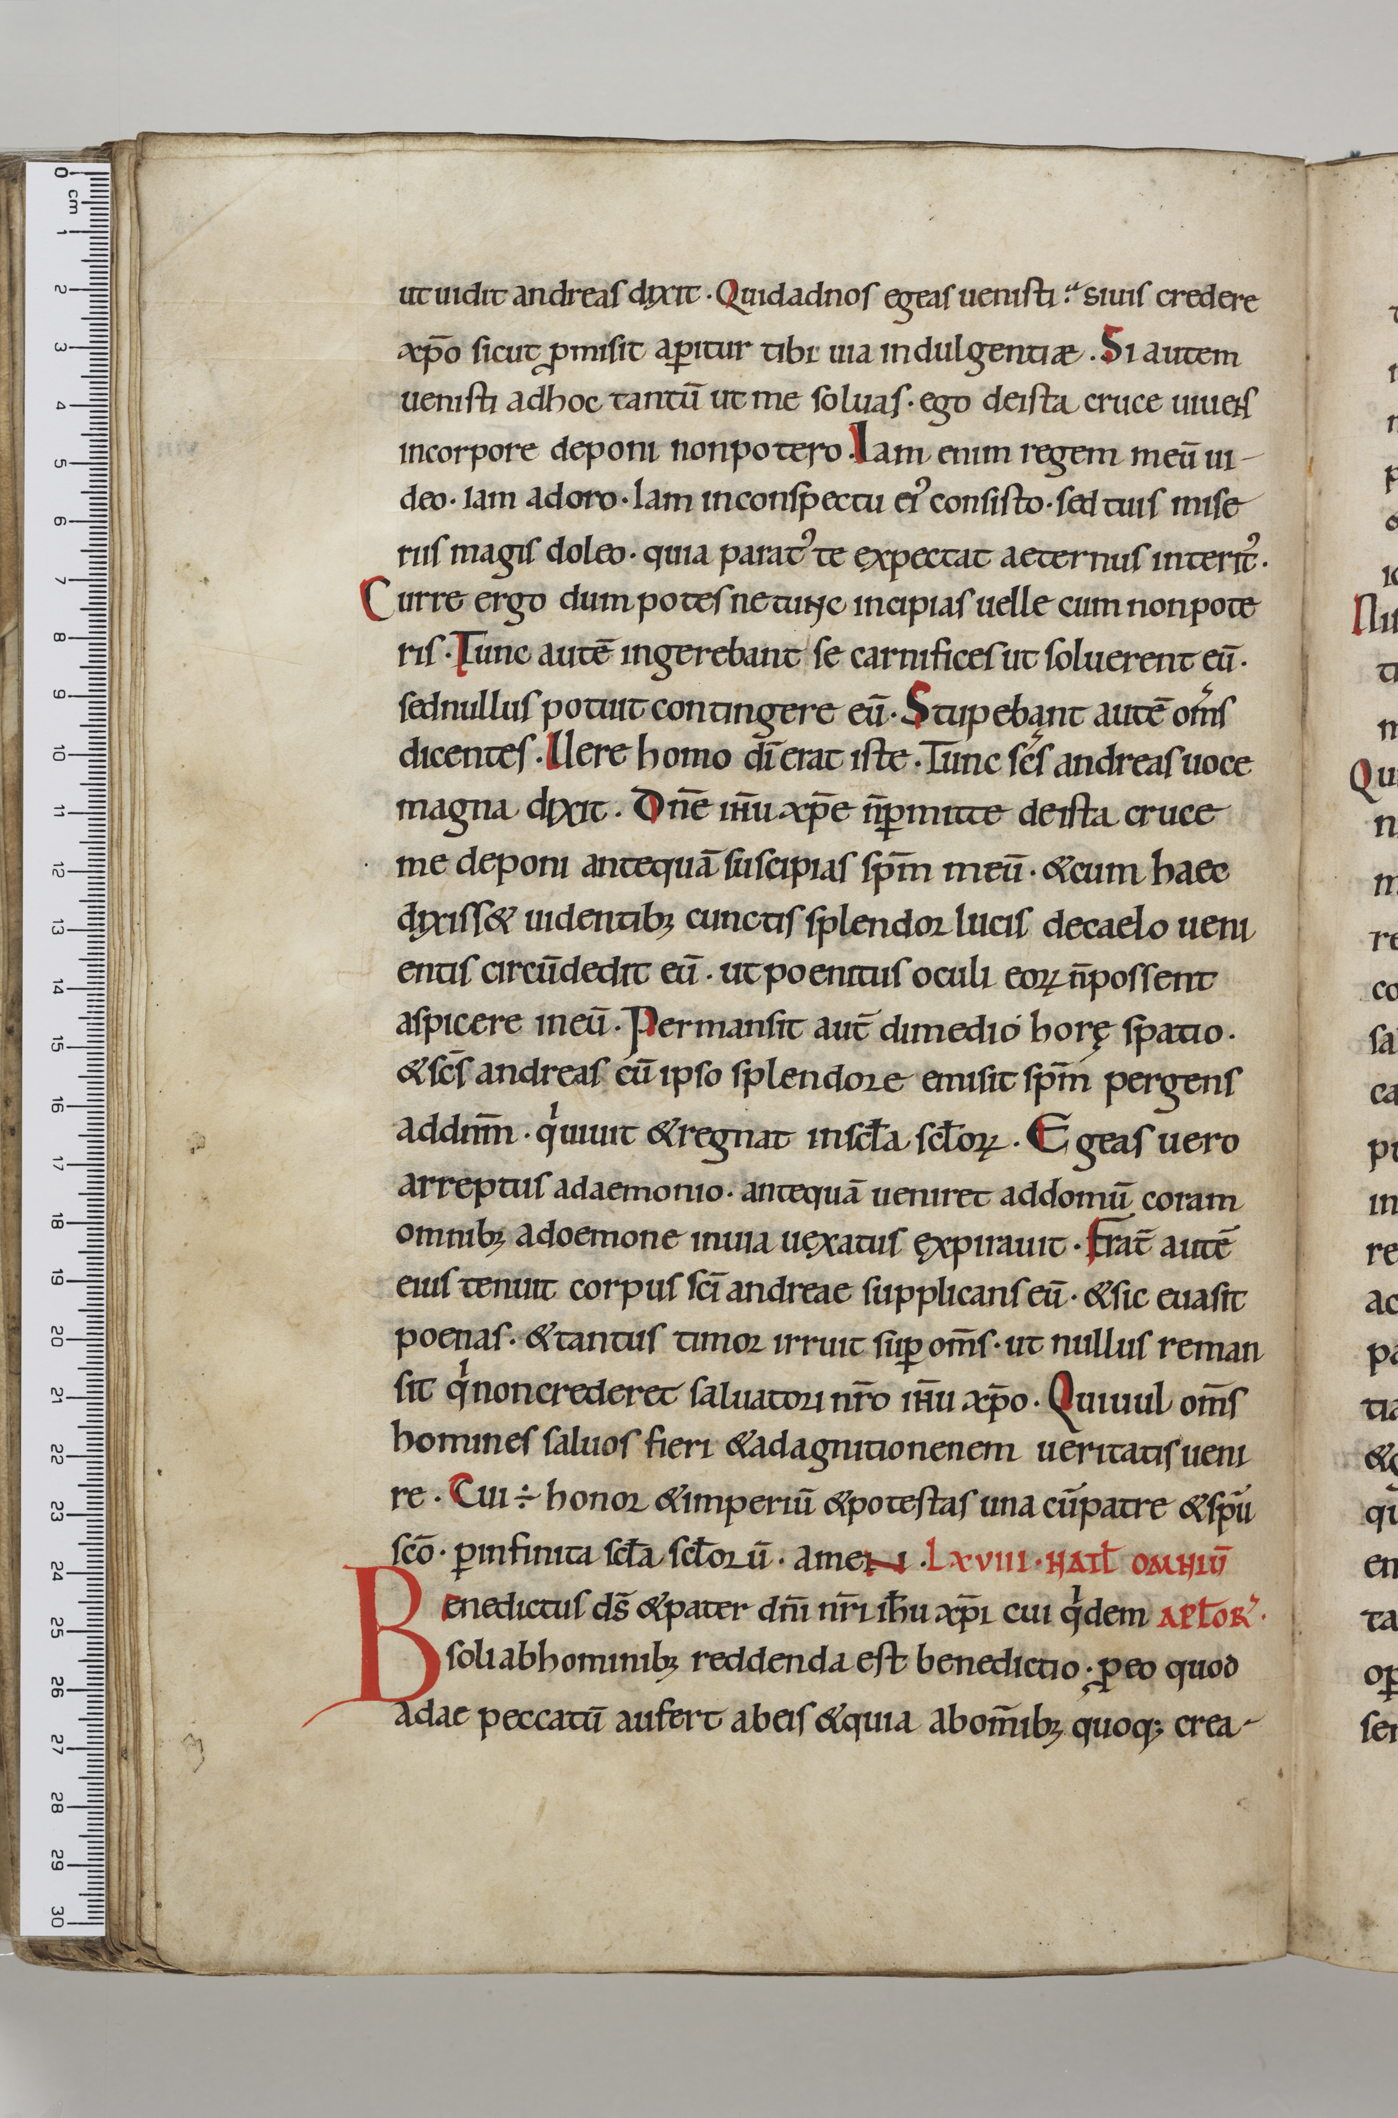 ut uidit andreas dixit · Quid ad nos egeas uenisti ? si uis credere
xp̄o sicut ꝓmisit aꝑitur tibi uia indulgentiæ . Si autem
uenisti adhoc tantū ut me soluas · ego deista cruce uiuens
incorpore deponi nonpotero . Iam enim regem meū ui-
deo · iam adoro · Iam inconspectu ei᾿ consisto · sed tuis mise
riis magis doleo · quia parat᾿ te expectat aeternus interit᾿ .
Curre ergo dum potes ne tunc incipias uelle cum non pote
ris . Tunc autē ingerebant se carnifices ut soluerent eū .
sed nullus potuit contingere eū . Stupebant autē om̄s
dicentes . Uere homo dī erat iste . Tunc sc̄s andreas uoce
magna dixit . Dn̄e ih̄u xp̄e n̄ ꝑmitte deista cruce
me deponi antequā suscipias sp̄m meū . &cum haec
dixiss& uidentibꝫ cunctis splendor lucis decaelo ueni
entis circūdedit eū . ut poenitus oculi eoꝝ n̄ possent
aspicere ineū . Permansit aut̄ dimedio horę spatio .
& sc̄s andreas cū ipso splendore emisit sp̄m pergens
addnm̄ . qͥ uiuit & regnat insc̄la sc̄loꝝ . Egeas uero
arreptus adaemonio . antequā ueniret addomū coram
omnibꝫ adoemone inuia uęxatus ęxpirauit . Frat̄ autē
eius tenuit corpus sc̄i andreae supplicans eū . &sic euasit
poenas . &tantus timor irruit suꝑ om̄s . ut nullus reman
sit qͥ noncrederet saluatori nr̄o ih̄u xp̄o . Quiuul om̄s
homines saluos fieri &adagnitionenem ueritatis ueni
re . Cui ÷ honor &imperiū &potestas una cū patre &sp̄u
sc̄o . ꝑ infinita sc̄la sc̄lorū . amen . LXVIII · NAT̄L OMNIŪ
Benedictus ds̄ &pater dn̄i nr̄i ih̄u xp̄i cui qͥdem APL̄OR᾿ .
soli abhominibꝫ reddenda est benedictio . ꝓ eo quod
adae peccatū aufert abeis &quia abom̄ibꝫ quoqꝫ crea-